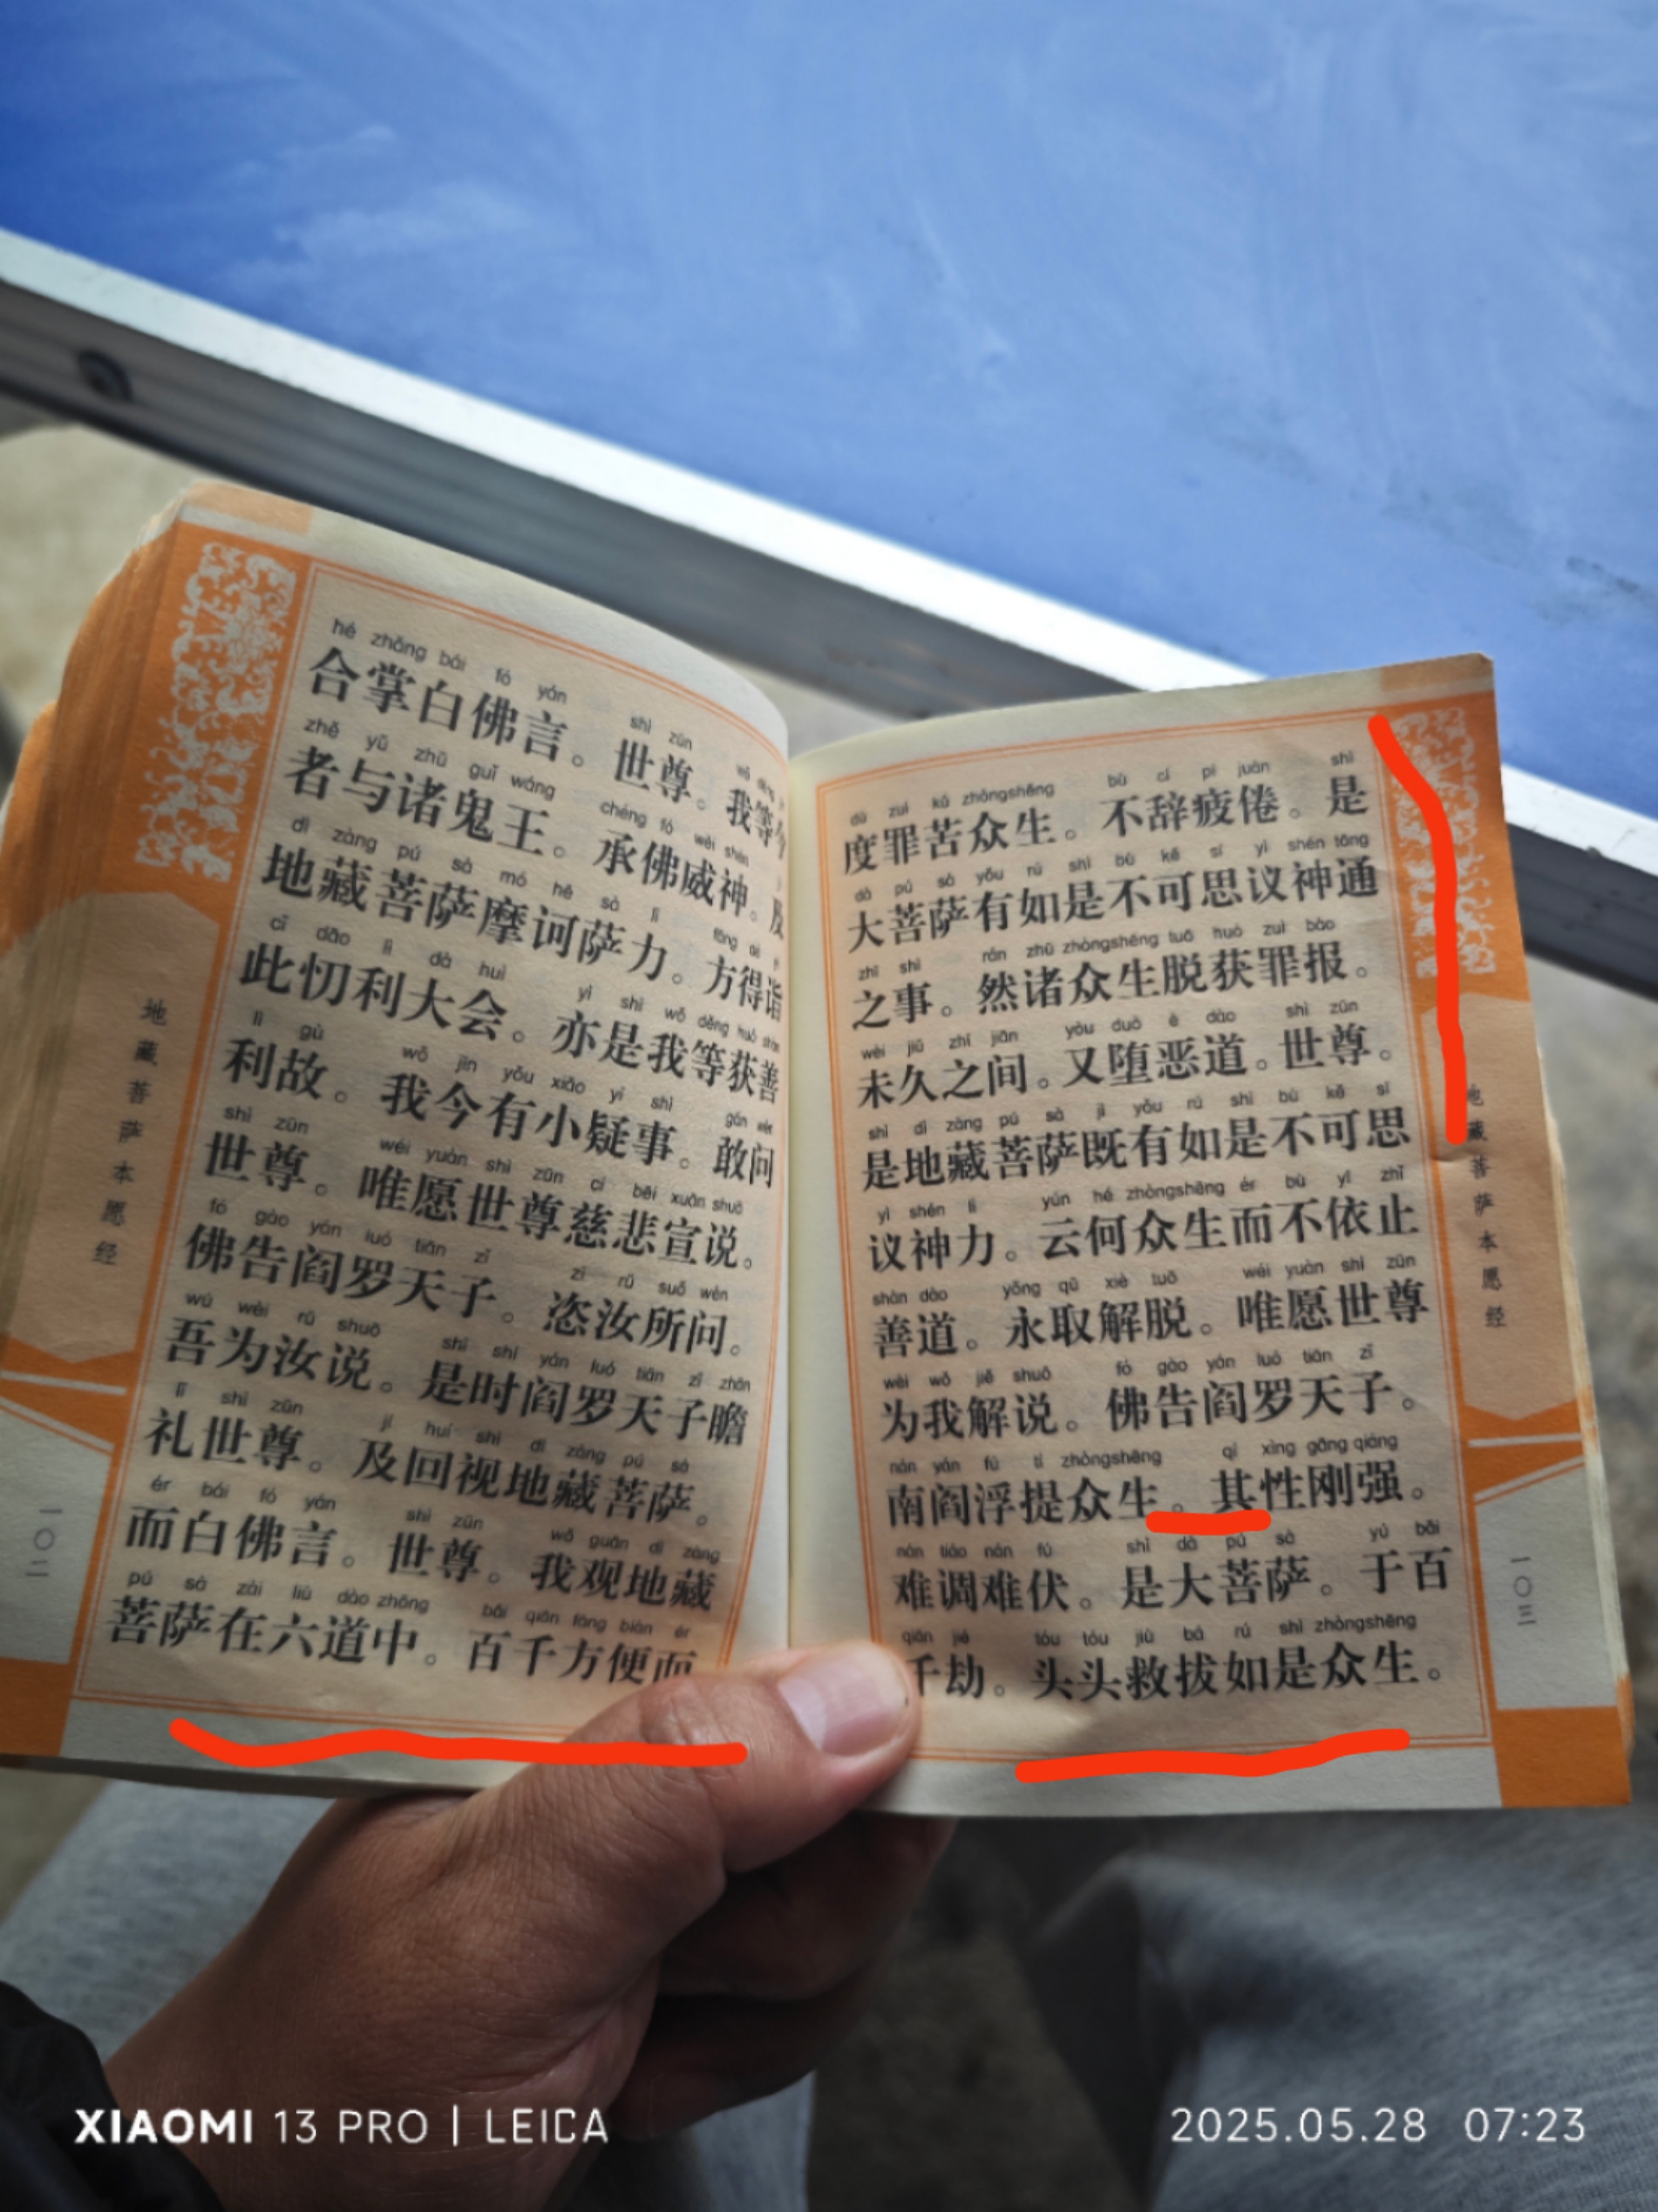 hé zhǎng bái fó yán shì zūn
合掌白佛言。世尊。我等今
zhě yǔ zhū guǐ wáng chéng fó wēi shén
者与诸鬼王。承佛威神。及
dì zàng pú sà mó hē sà lì
地藏菩萨摩诃萨力。方得诣
cǐ dāo lì dà huì yì shì wǒ děng huò shàn
此忉利大会。亦是我等获善
lì gù wǒ jīn yǒu xiǎo yí shì gǎn wèn
利故。我今有小疑事。敢问
shì zūn wéi yuàn shì zūn cí bēi xuān shuō
世尊。唯愿世尊慈悲宣说。
fó gào yán luó tiān zǐ zì rǔ suǒ wèn
佛告阎罗天子。恣汝所问。
wú wèi rǔ shuō shì shí yán luó tiān zǐ zhān
吾为汝说。是时阎罗天子瞻
lǐ shì zūn jí huí shì dì zàng pú sà
礼世尊。及回视地藏菩萨。
ér bái fó yán shì zūn wǒ guān dì zàng
而白佛言。世尊。我观地藏
pú sà zài liù dào zhōng bǎi qiān fāng biàn ér
菩萨在六道中。百千方便而
地藏菩萨本愿经
一〇二
dù zuì kǔ zhòngshēng bù cí pí juàn shì
度罪苦众生。不辞疲倦。是
dà pú sà yǒu rú shì bù kě sī yì shén tōng
大菩萨有如是不可思议神通
zhī shì rán zhū zhòngshēng tuō huò zuì bào
之事。然诸众生脱获罪报。
wèi jiǔ zhī jiān yòu duò è dào shì zūn
未久之间。又堕恶道。世尊。
shì dì zàng pú sà jì yǒu rú shì bù kě sī
是地藏菩萨既有如是不可思
yì shén lì yún hé zhòngshēng ér bù yī zhǐ
议神力。云何众生而不依止
shàn dào yǒng qǔ xiè tuō wéi yuàn shì zūn
善道。永取解脱。唯愿世尊
wèi wǒ jiě shuō fó gào yán luó tiān zǐ
为我解说。佛告阎罗天子。
nán yán fú tí zhòngshēng qí xìng gāng qiáng
南阎浮提众生。其性刚强。
nán tiáo nán fú shì dà pú sà yú bǎi
难调难伏。是大菩萨。于百
qiān jié tóu tóu jiù bá rú shì zhòngshēng
千劫。头头救拔如是众生。
地藏菩萨本愿经
一〇三
XIAOMI 13 PRO | LEICA
2025.05.28 07:23